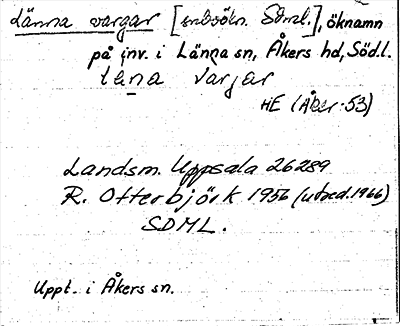 Länna vargar [inbsökn. Sdml.], öknamn
på inv. i Länna sn, Åkers hd, Södl.
lena varjar
HE (Åker 53)
Landsm. Uppsala 26289
R. Otterbjörk 1956 (utred. 1966)
SDML.
Uppt. i Åkers sn.